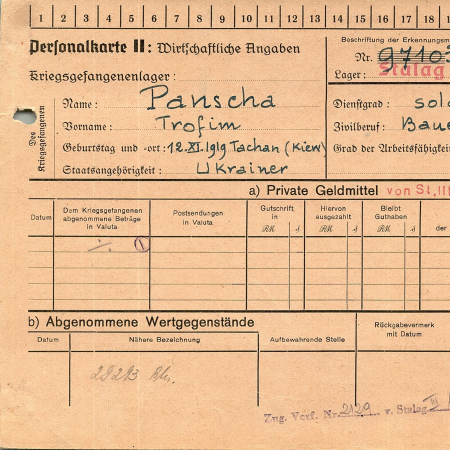 1 2 3 4 5 6 7 8 9 10 11 12 13 14 15 16 17 18
Personalkarte II: Wirtschaftliche Angaben
Kriegsgefangenenlager:
Des Kriegsgefangenen
Name: Panscha
Vorname: Trofim
Geburtstag und -ort: 12.XI.1919 Tachan (Kiew)
Staatsangehörigkeit: Ukrainer
Beschriftung der Erkennungsm
Nr. 97103
Lager: Stalag
Dienstgrad: sold
Zivilberuf: Baue
Grad der Arbeitsfähigkei
a) Private Geldmittel von St. III
Datum
Dem Kriegsgefangenen abgenommene Beträge in Valuta
Postsendungen in Valuta
Gutschrift in
RM
Hiervon ausgezahlt
RM
Bleibt Guthaben
RM
der
1
b) Abgenommene Wertgegenstände
Datum
Nähere Bezeichnung
Aufbewahrende Stelle
Rückgabevermerk mit Datum
Zug. Verf. Nr. 2129 v. Stalag III